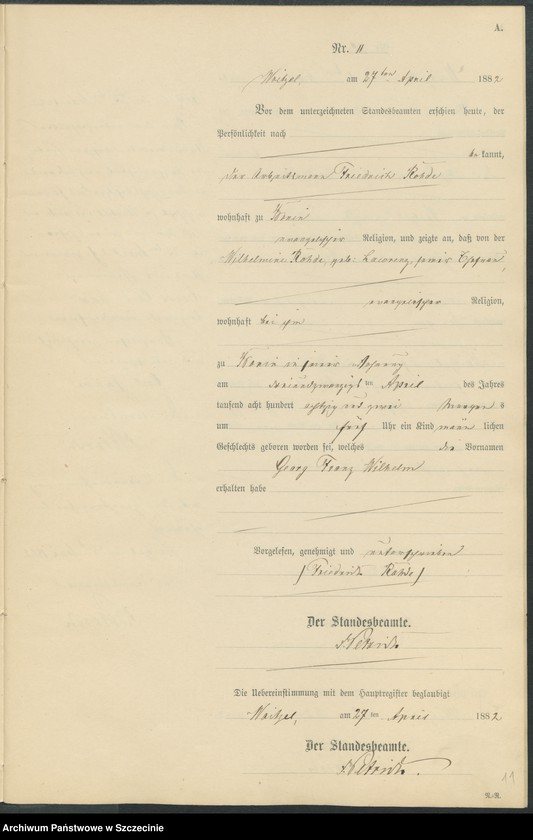 A.
Nr. 11
am 27ten April 1882
Vor dem unterzeichneten Standesbeamten erschien heute, der
Persönlichkeit nach
be kannt,
der Arbeitsmann Friedrich Rohde
wohnhaft zu
evangelischer Religion, und zeigte an, daß von der
Wilhelmine Rohde, geb. seiner Ehefrau,
evangelischer Religion,
wohnhaft bei ihm
zu in seiner Wohnung
am ten April des Jahres
tausend acht hundert achtzig und zwei Morgens
um fünf Uhr ein Kind männ lichen
Geschlechts geboren worden sei, welches die Vornamen
Georg Franz Wilhelm
erhalten habe
Vorgelesen, genehmigt und unterschrieben
Friedrich Rohde
Der Standesbeamte.
Die Uebereinstimmung mit dem Hauptregister beglaubigt
am 27 ten April 1882
Der Standesbeamte.
11
R.-R.
Archiwum Państwowe w Szczecinie